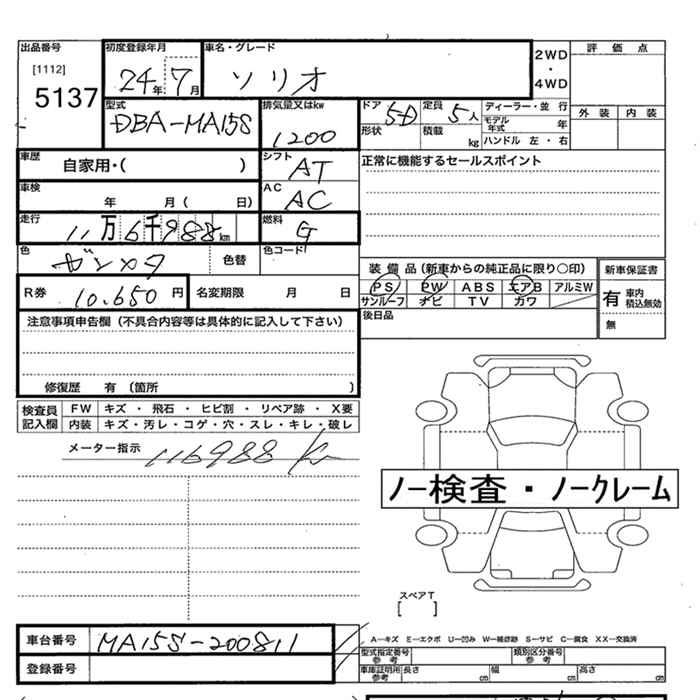 出品番号 初度登録年月 車名・グレード 2WD 評価点
[1112] 24年 7月 ソリオ ・
5137 4WD 外装 内装
型式 排気量又はkw ドア 5D 定員 5人 ディーラー・並行
DBA-MA15S 1200 形状 積載 kg モデル年式 年
ハンドル 左・右
車歴 自家用・( ) シフト AT 正常に機能するセールスポイント
車検 年 月( 日) AC AC
走行 11万6千988km 燃料 G
色 ガンメタ 色替 色コード
装備品(新車からの純正品に限り○印) 新車保証書
R券 10,650円 名変期限 月 日 PS PW ABS エアB アルミW 有 車内積込無効
サンルーフ ナビ TV カワ 無
注意事項申告欄(不具合内容等は具体的に記入して下さい) 後日品
修復歴 有(箇所 )
検査員 FW キズ・飛石・ヒビ割・リペア跡・X要
記入欄 内装 キズ・汚レ・コゲ・穴・スレ・キレ・破レ
メーター指示 116988 km
ノー検査・ノークレーム
スペアT
[ ]
車台番号 MA15S-200811 A―キズ E―エクボ U―凹み W―補修跡 S―サビ C―腐食 XX―交換済
登録番号 型式指定番号 参考 類別区分番号 参考
車庫証明用 参考 長さ cm 幅 cm 高さ cm